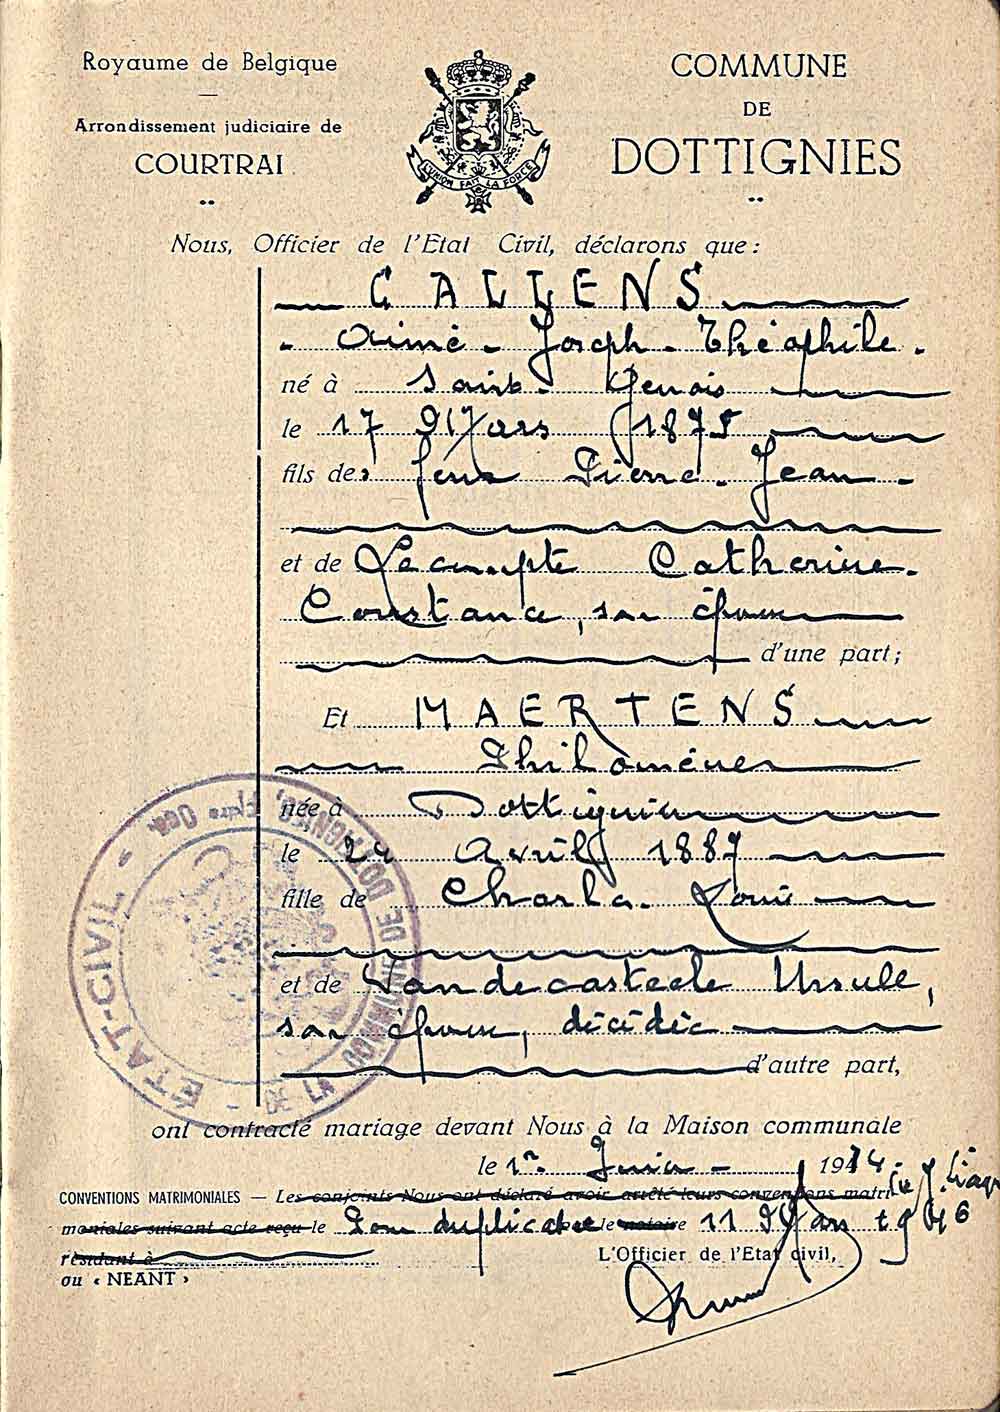 Royaume de Belgique
Arrondissement judiciaire de
COURTRAI
L'UNION FAIT LA FORCE
COMMUNE
DE
DOTTIGNIES
Nous, Officier de l'Etat Civil, déclarons que :
CALLENS
Aimé - Joseph - Théophile -
né à Saint Genois
le 17 Mars 1875
fils de feux Pierre - Jean -
et de Lecompte Catherine -
Constance, son épouse
d'une part ;
Et MAERTENS
Philomène
née à Dottignies
le Avril 1887
fille de Charles - Louis
et de Vandecasteele Ursule,
son épouse, décédée
d'autre part,
ÉTAT-CIVIL - DE LA COMMUNE DE DOTTIGNIES, Flandre Occ.
ont contracté mariage devant Nous à la Maison communale
le 1er Juin - 1914
CONVENTIONS MATRIMONIALES — Les conjoints Nous ont déclaré avoir arrêté leurs conventions matri-
moniales suivant acte reçu le Pour duplicata le notaire 11 Mars 1946
résidant à
ou « NEANT »
L'Officier de l'Etat civil,